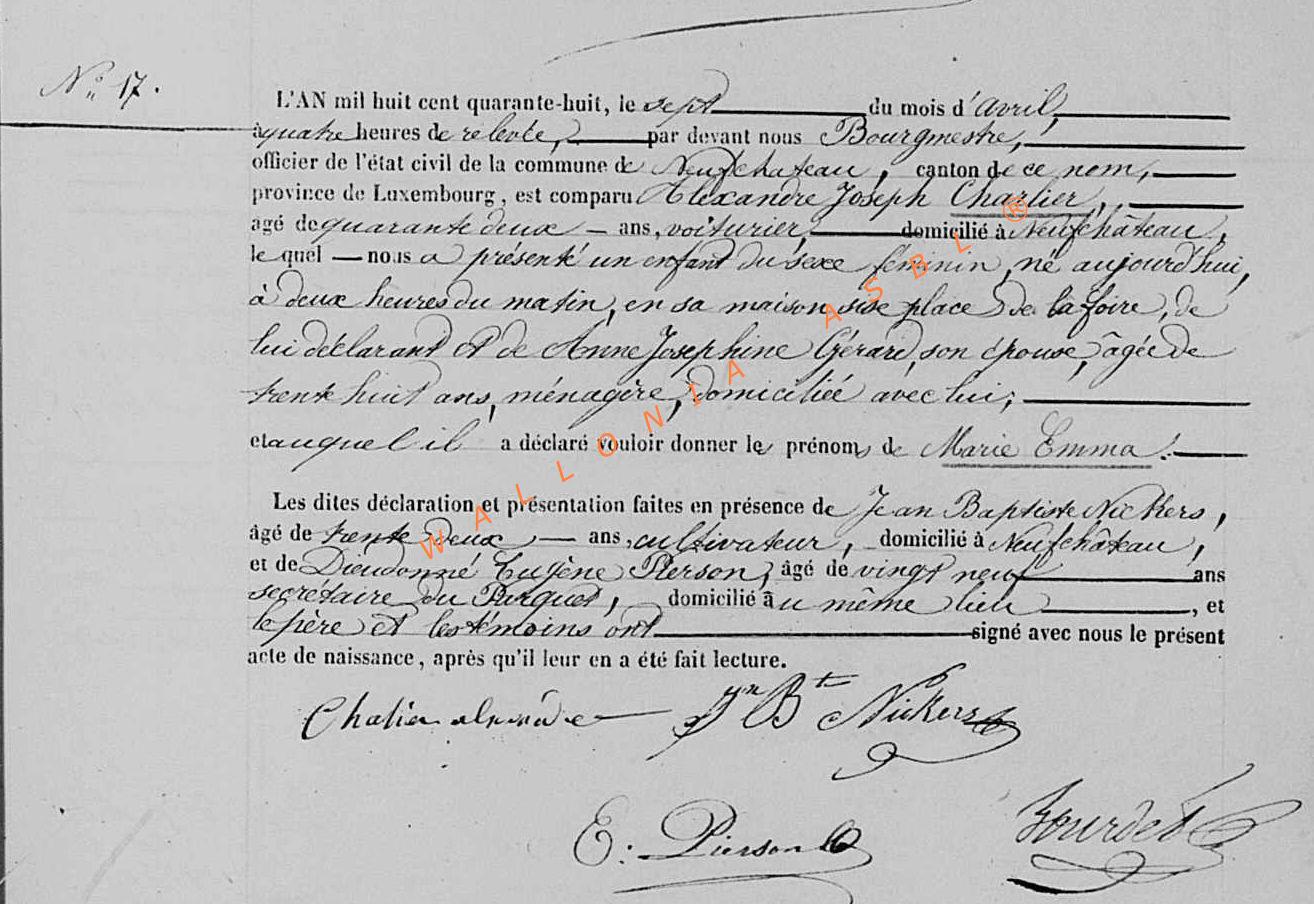 N° 17.
L'AN mil huit cent quarante-huit, le sept du mois d'avril,
à quatre heures de relevée, par devant nous Bourgmestre,
officier de l'état civil de la commune de Neufchateau, canton de ce nom,
province de Luxembourg, est comparu Alexandre Joseph Charlier,
agé de quarante deux — ans, voiturier, domicilié à Neufchâteau,
le quel — nous a présenté un enfant du sexe féminin, né aujourd'hui,
à deux heures du matin, en sa maison sise place de la foire, de
lui déclarant et de Anne Josephine Gérard, son épouse, âgée de
trente huit ans, ménagère, domiciliée avec lui;
et auquel il a déclaré vouloir donner les prénoms de Marie Emma.
Les dites déclaration et présentation faites en présence de Jean Baptiste Nickers,
âgé de trente deux — ans, cultivateur, domicilié à Neufchâteau,
et de Dieudonné Eugène Pierson, âgé de vingt neuf ans
secrétaire du Parquet, domicilié au même lieu, et
le père et les témoins ont signé avec nous le présent
acte de naissance, après qu'il leur en a été fait lecture.
Jn Bte Nickers
E. Pierson
Bourdet
WALLONIA ASBL ®